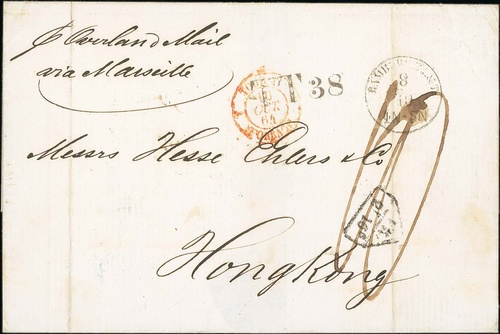 p Overland Mail
via Marseille
T 38
OCT
64
8
Messrs Hesse Ehlers & Co
Hongkong